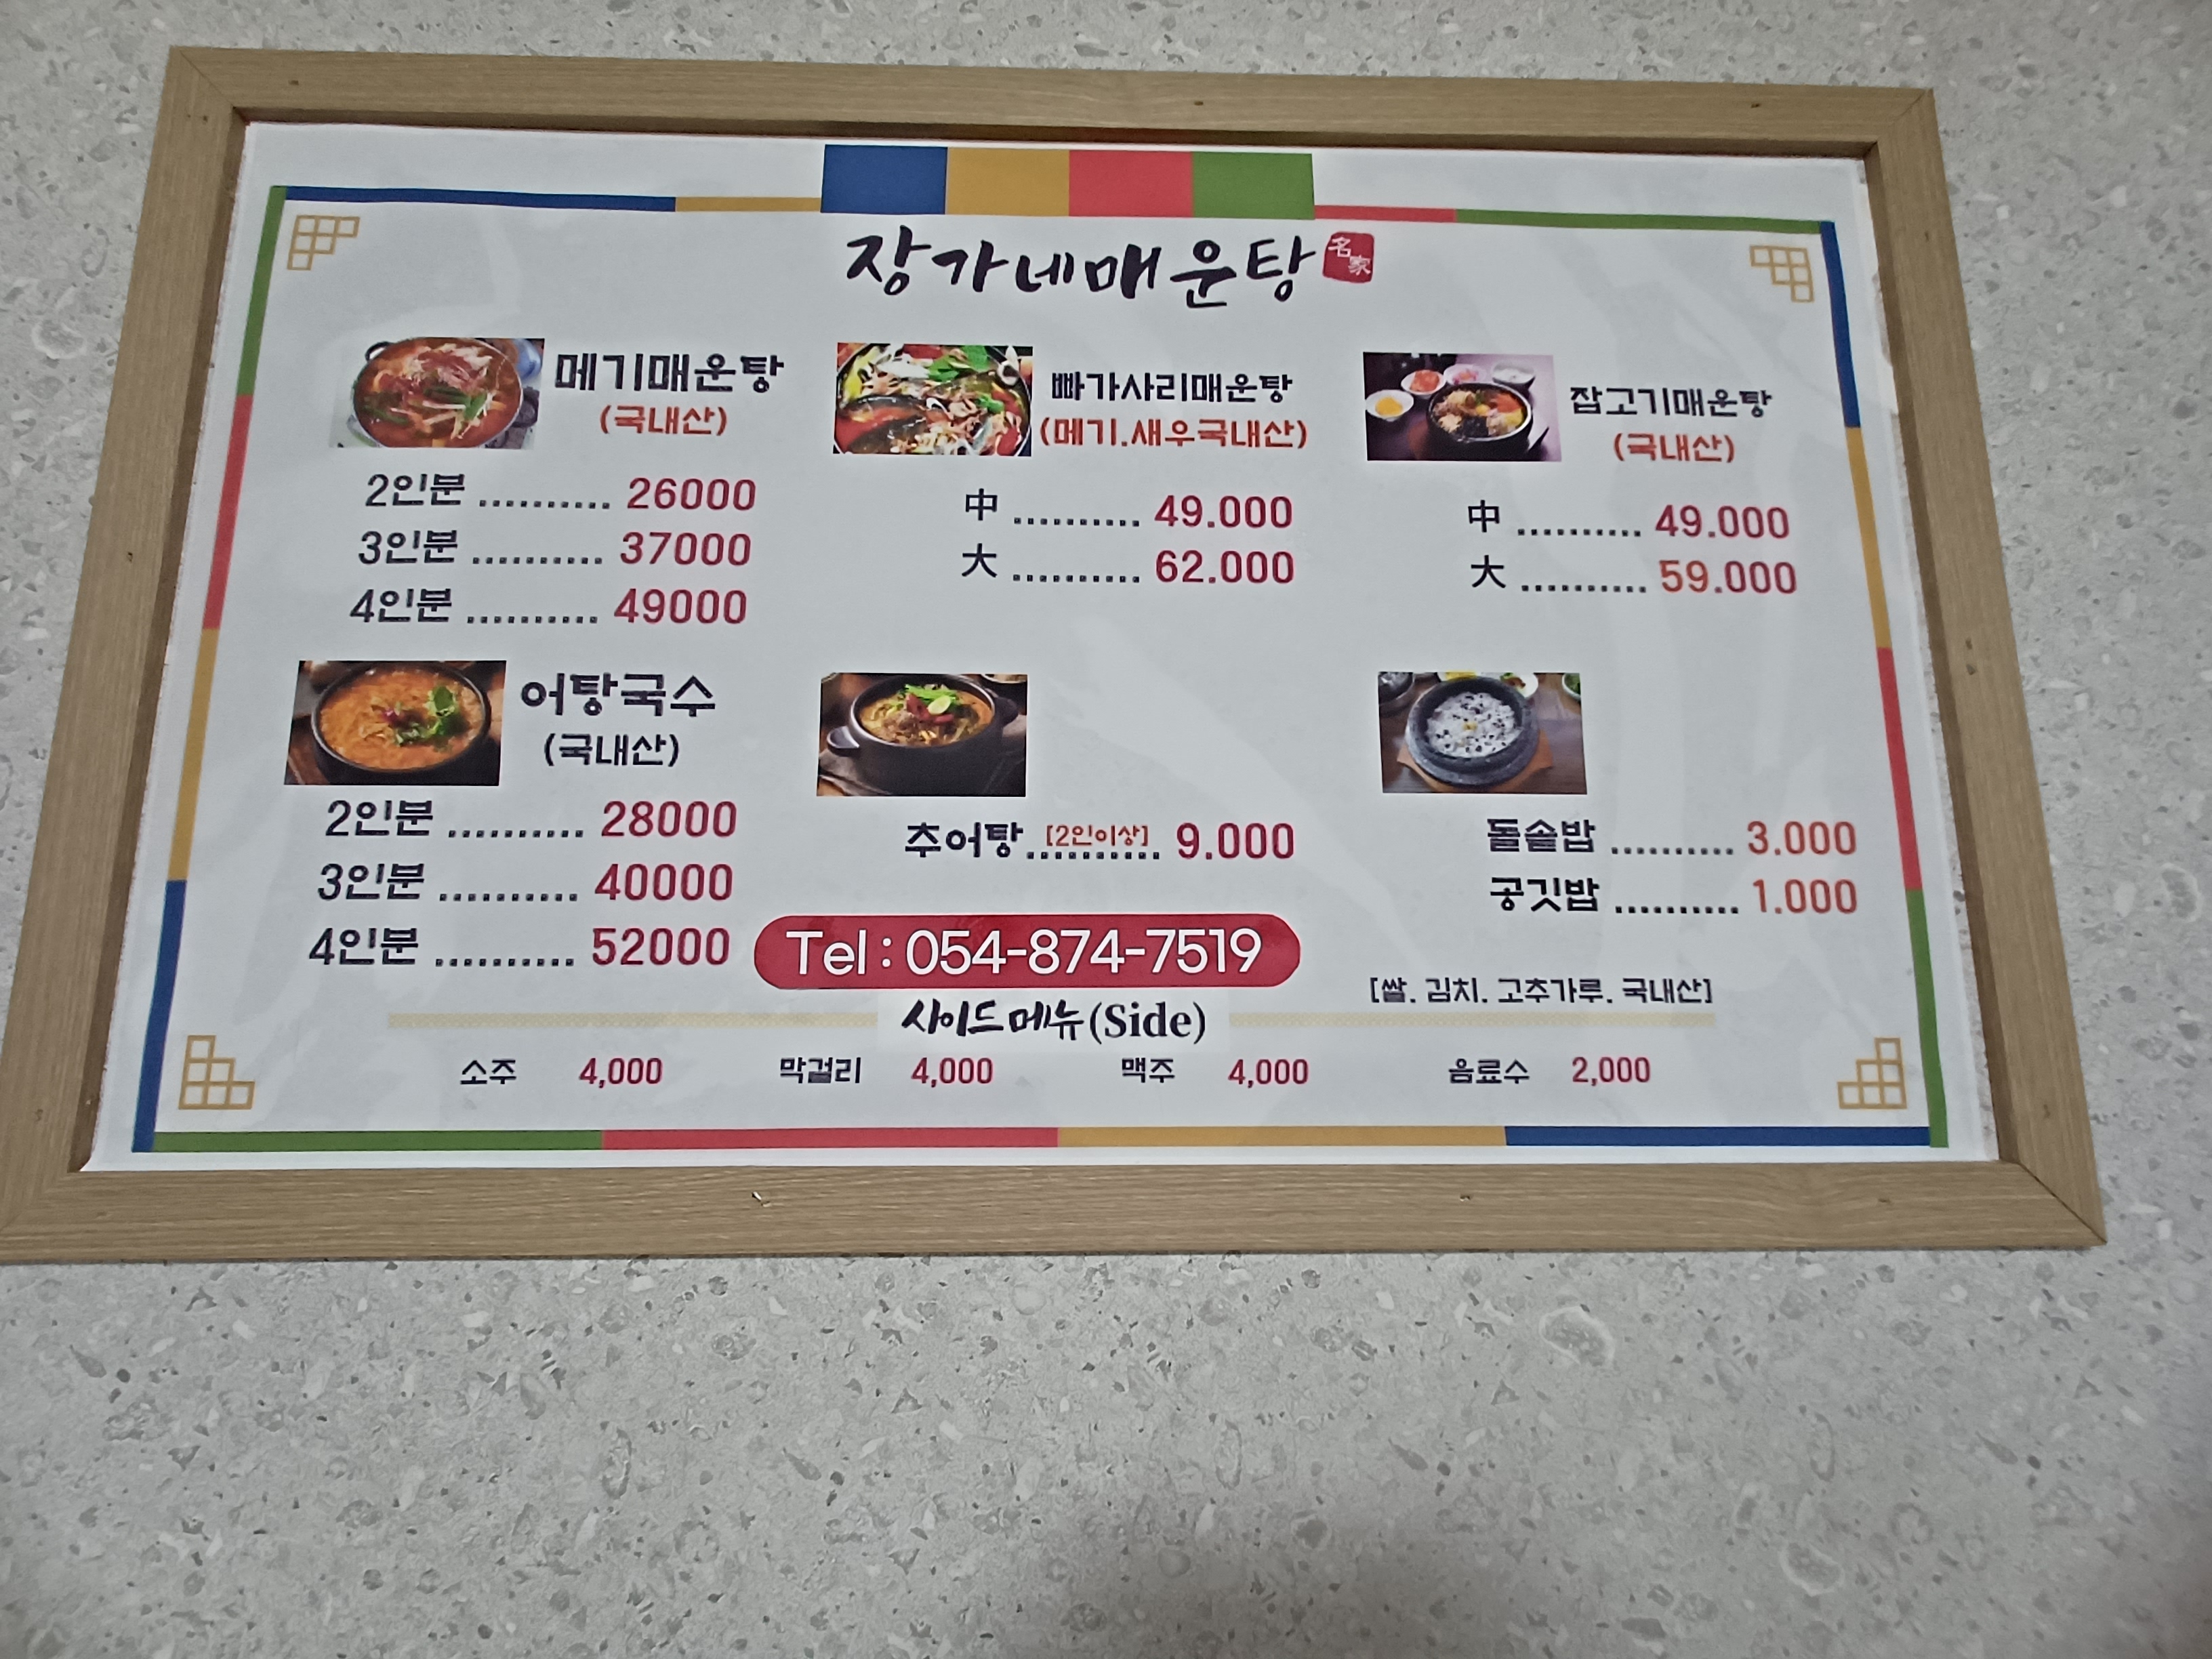 장가네매운탕 名家
메기매운탕
(국내산)
2인분 .......... 26000
3인분 .......... 37000
4인분 .......... 49000
빠가사리매운탕
(메기.새우국내산)
中 .......... 49.000
大 .......... 62.000
잡고기매운탕
(국내산)
中 .......... 49.000
大 .......... 59.000
어탕국수
(국내산)
2인분 .......... 28000
3인분 .......... 40000
4인분 .......... 52000
추어탕 [2인이상] .......... 9.000
돌솥밥 .......... 3.000
공깃밥 .......... 1.000
Tel : 054-874-7519
[쌀. 김치. 고추가루. 국내산]
사이드메뉴(Side)
소주 4,000 막걸리 4,000 맥주 4,000 음료수 2,000